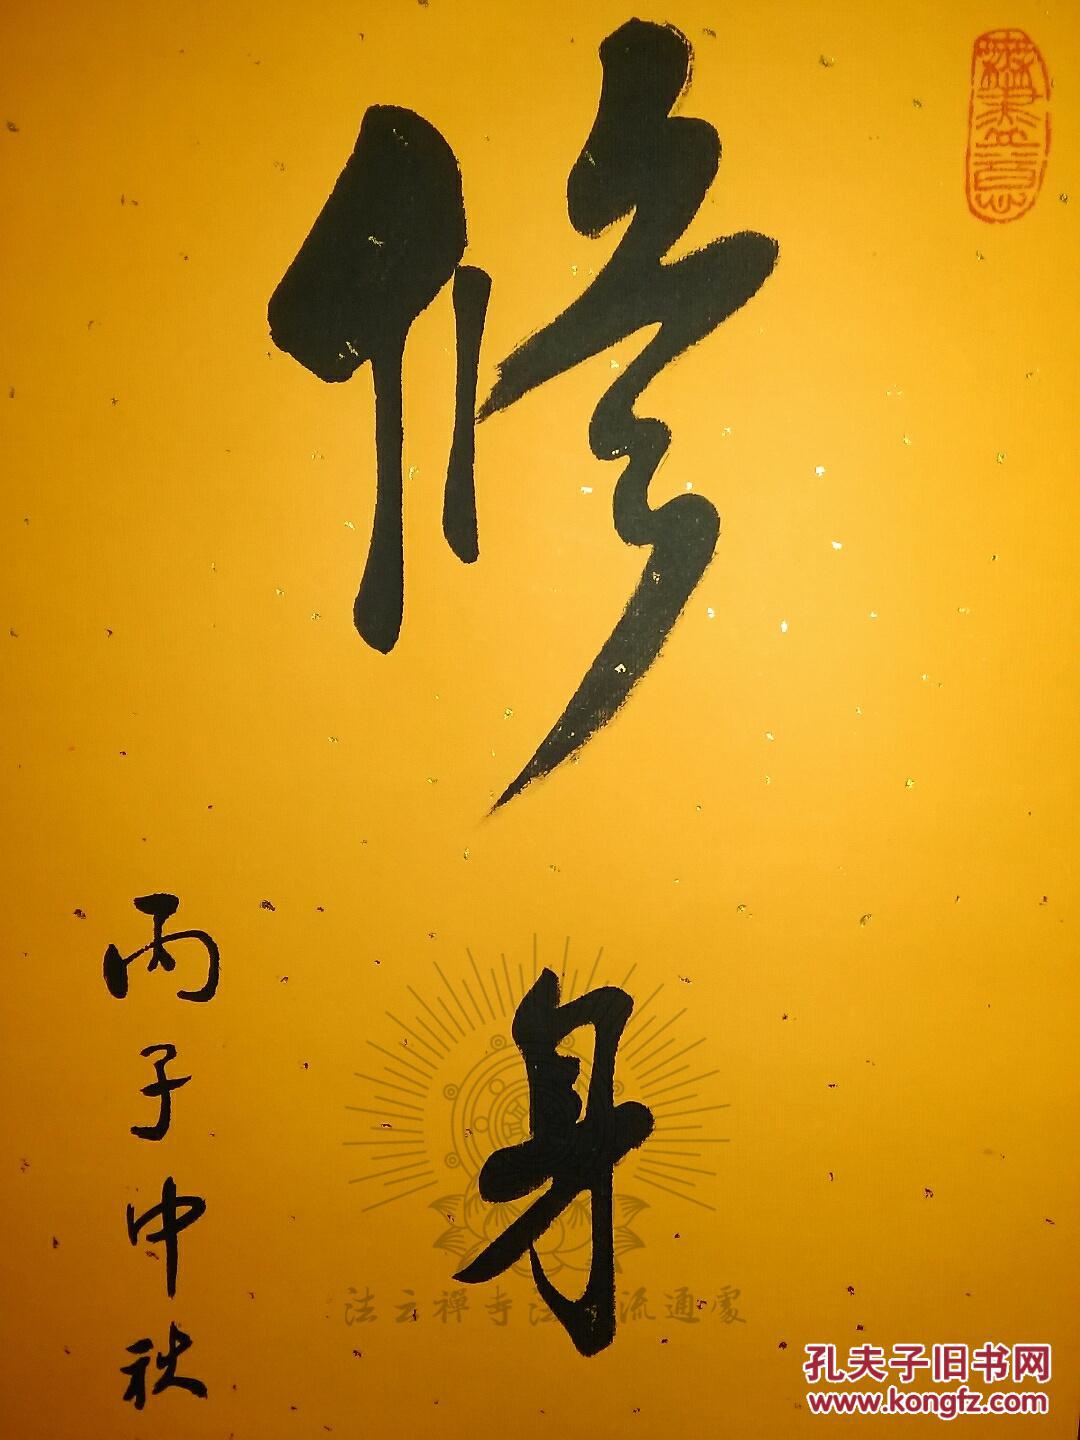 修身
丙子中秋
法云禪寺法 流通處
孔夫子旧书网
www.kongfz.com